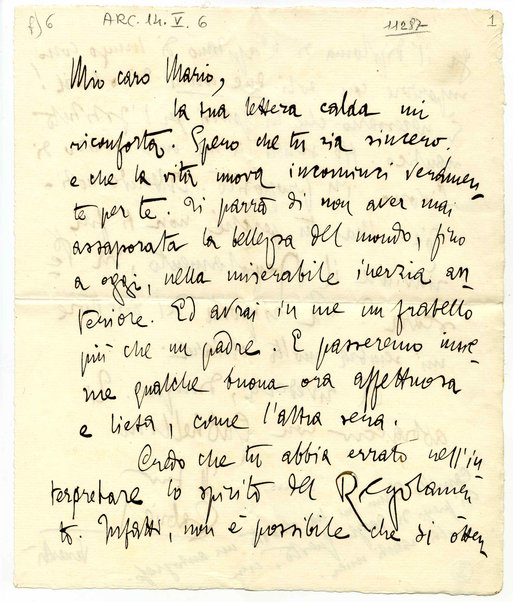 f)6 ARC. 14. V. 6 11287 1
Mio caro Mario,
la tua lettera calda mi
riconforta. Spero che tu sia sincero.
e che la vita nuova incominci veramen-
te per te. Ti parrà di non aver mai
assaporata la bellezza del mondo, fino
a oggi, nella miserabile inerzia an
teriore. Ed avrai in me un fratello
più che un padre. E passeremo insie
me qualche buona ora affettuosa
e lieta, come l'altra sera.
Credo che tu abbia errato nell'in
terpretare lo spirito del Regolamen
to. Infatti, non è possibile che si otten